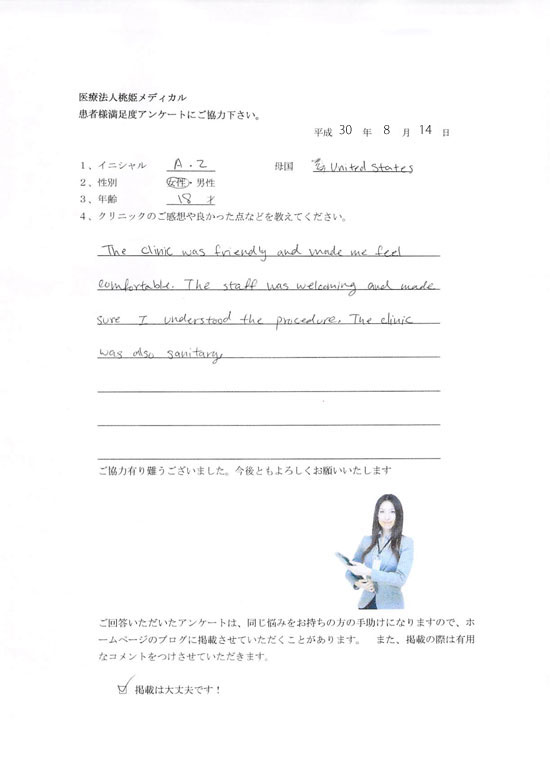 医療法人桃姫メディカル
患者様満足度アンケートにご協力下さい。
平成 30 年 8 月 14 日
1、イニシャル A.Z 母国 United States
2、性別 女性・男性
3、年齢 18 才
4、クリニックのご感想や良かった点などを教えてください。
The clinic was friendly and made me feel
comfortable. The staff was welcoming and made
sure I understood the procedure. The clinic
was also sanitary.
ご協力有り難うございました。今後ともよろしくお願いいたします
ご回答いただいたアンケートは、同じ悩みをお持ちの方の手助けになりますので、ホ
ームページのブログに掲載させていただくことがあります。 また、掲載の際は有用
なコメントをつけさせていただきます。
☑ 掲載は大丈夫です！